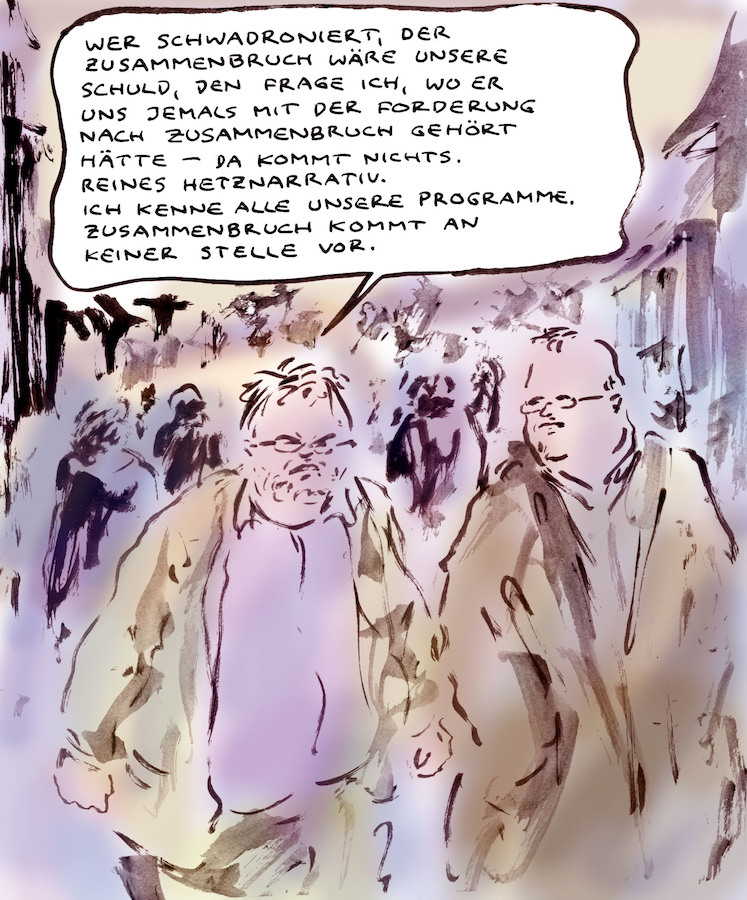 WER SCHWADRONIERT, DER
ZUSAMMENBRUCH WÄRE UNSERE
SCHULD, DEN FRAGE ICH, WO ER
UNS JEMALS MIT DER FORDERUNG
NACH ZUSAMMENBRUCH GEHÖRT
HÄTTE – DA KOMMT NICHTS.
REINES HETZNARRATIV.
ICH KENNE ALLE UNSERE PROGRAMME.
ZUSAMMENBRUCH KOMMT AN
KEINER STELLE VOR.